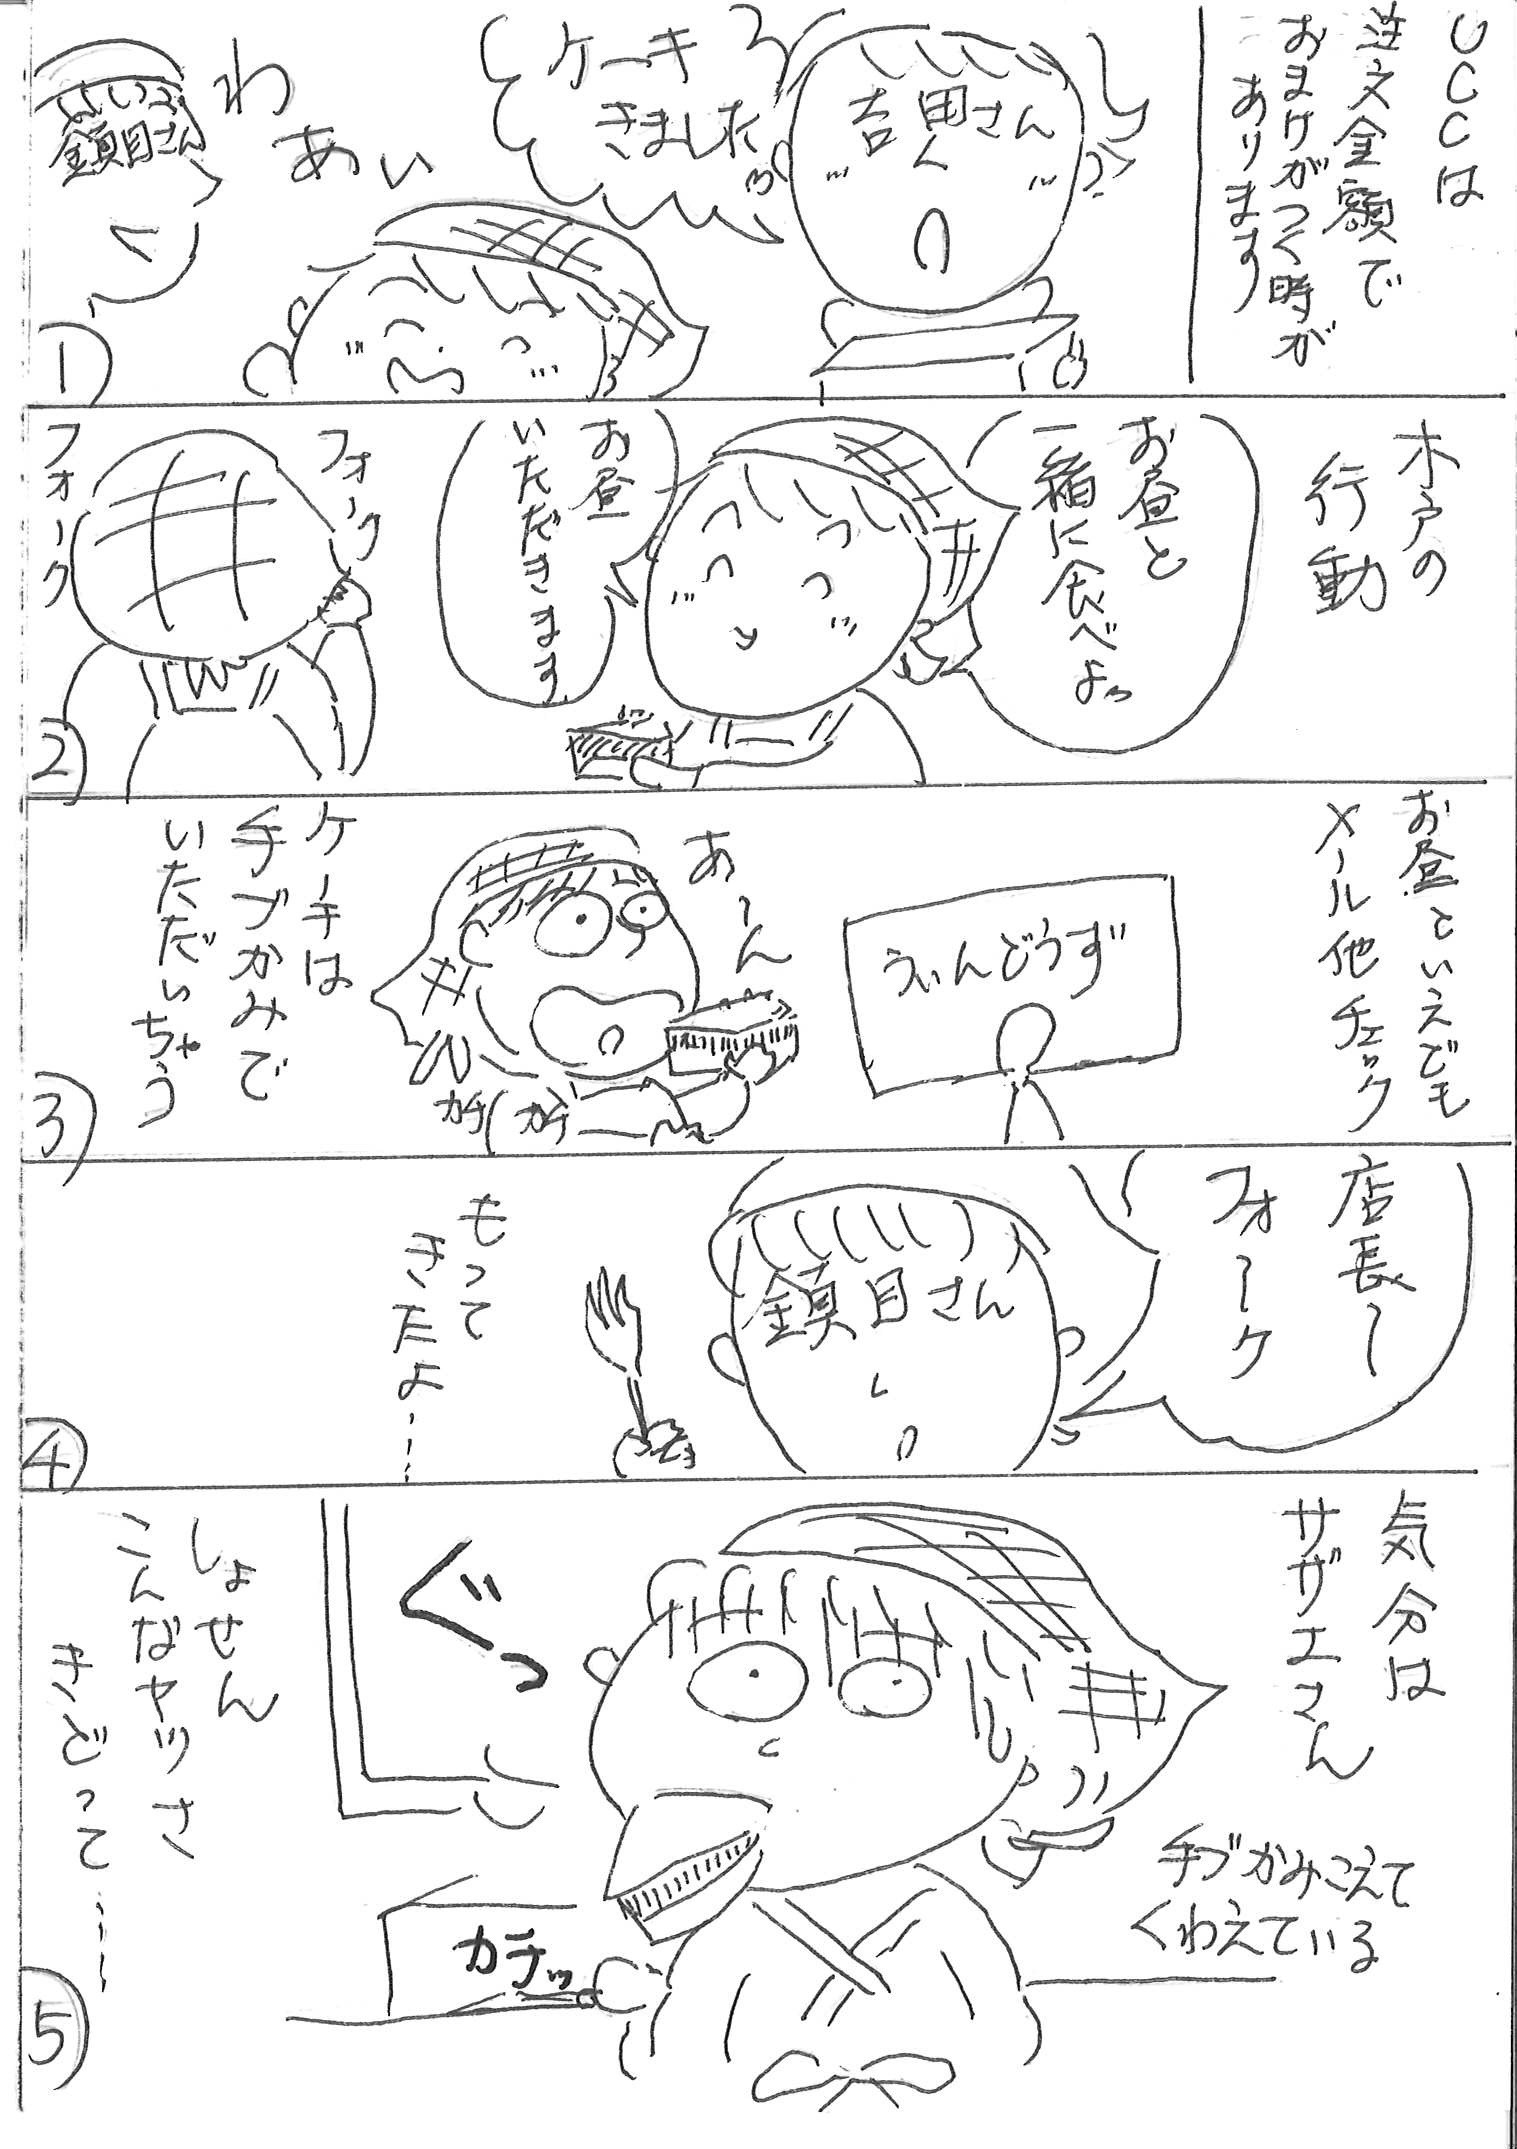 UCCは
注文金額で
おまけがつく時が
あります
吉田さん
ケーキ
きました
わ
あい
鎮目さん
1
木戸の
行動
お昼と
一緒に食べよっ
お昼
いただきます
フォーク
フォーク
2
お昼といえども
メール他チェック
うぃんどうず
あーん
カチ
カチ
ケーキは
手ブかみで
いただいちゃう
3
店長〜
フォーク
鎮目さん
もって
きたよ……
4
気分は
サザエさん
手ブかみこえて
くわえている
ぐいっ
カチッ
しょせん
こんなヤツさ
きどって……
5